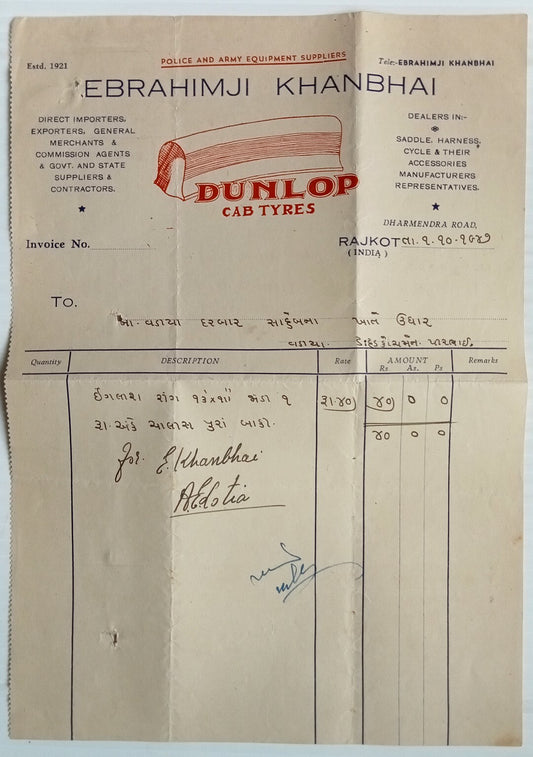 Estd. 1921
POLICE AND ARMY EQUIPMENT SUPPLIERS
Tele:-EBRAHIMJI KHANBHAI
EBRAHIMJI KHANBHAI
DIRECT IMPORTERS,
EXPORTERS, GENERAL
MERCHANTS &
COMMISSION AGENTS
& GOVT. AND STATE
SUPPLIERS &
CONTRACTORS.
DUNLOP
CAB TYRES
DEALERS IN:-
SADDLE, HARNESS,
CYCLE & THEIR
ACCESSORIES
MANUFACTURERS
REPRESENTATIVES.
DHARMENDRA ROAD,
Invoice No.
RAJKOT તા. ૧. ૧૦.
( INDIA )
TO.
વડીયા દરબાર સાહેબના ખાતે ઉધાર
વડીયા.
Quantity DESCRIPTION Rate AMOUNT Remarks
Rs As. Ps
૧ ૪૦) ૪૦) ૦ ૦
રૂા. અંકે ચાલીસ પુરા બાકી. ૪૦ ૦ ૦
for. E. Khanbhai